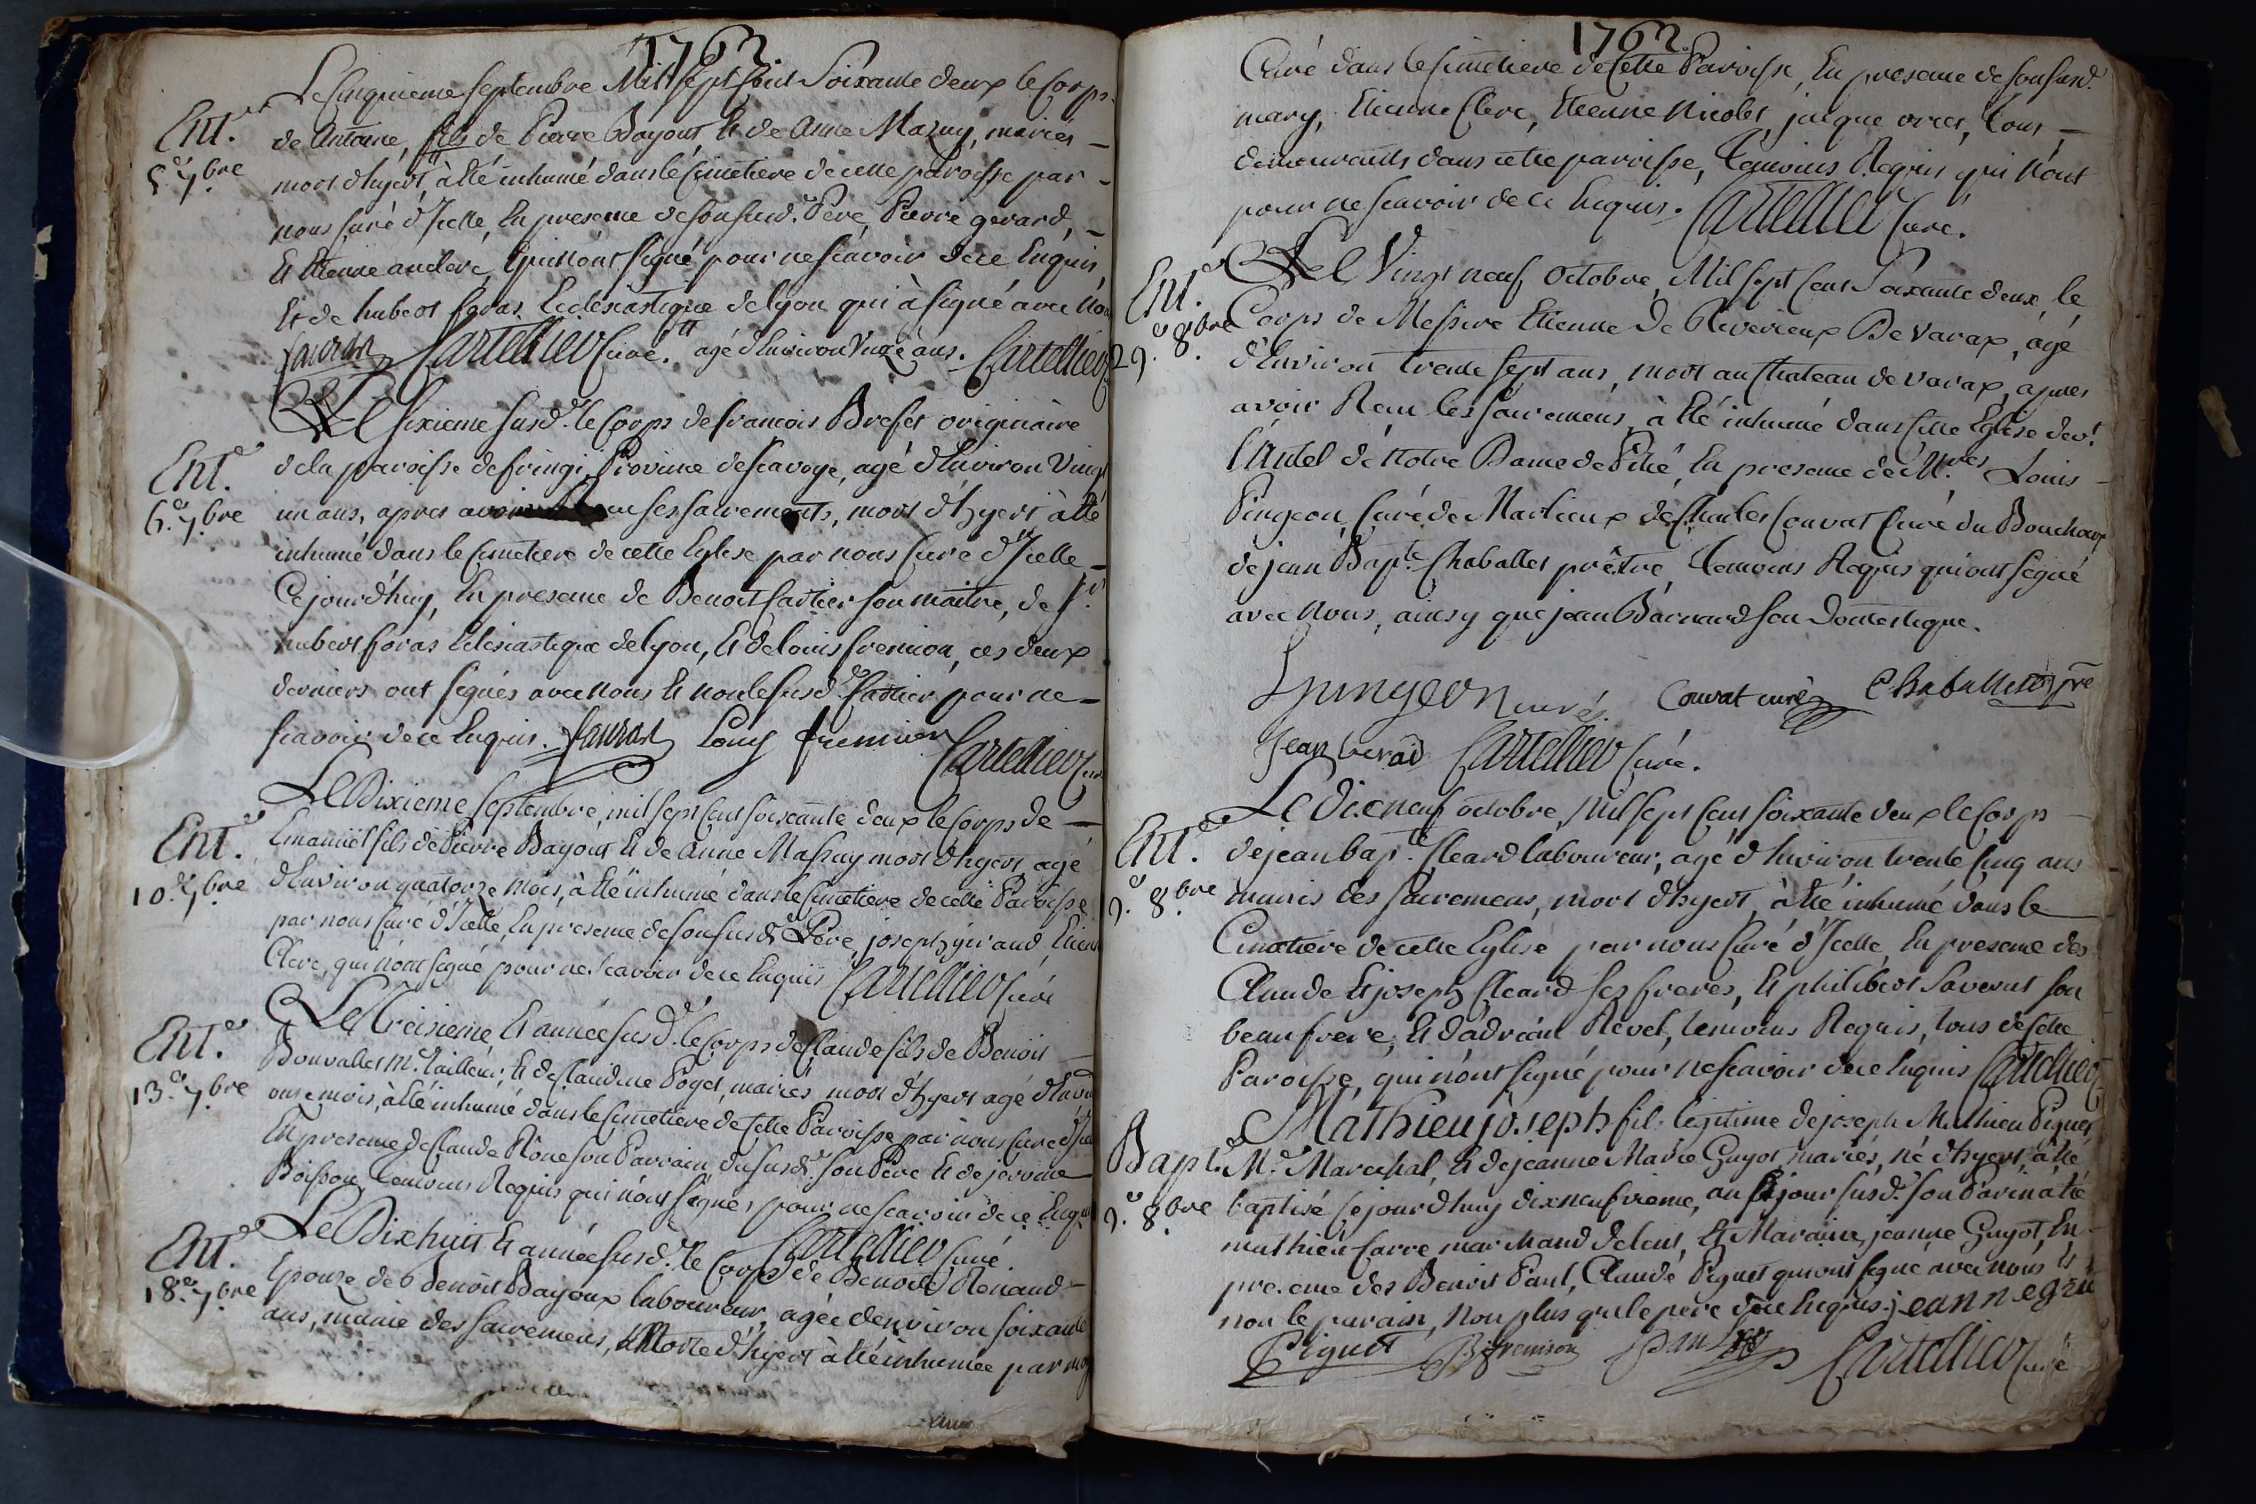 1762
Ent.er
5.e 7.bre
Le Cinquieme septembre Mil sept Cent Soixante deux le Corps
de Antoine, fils de Pierre Bayout, Et de Anne Mazuy, mariés
mort d'hyert, à été inhumé dans le Cimetiere de cette paroisse par
nous Curé d'Icelle, En presence de son susd. Pere, Pierre gerard,
Et Etienne auclerc, qui n'ont signé pour ne scavoir de ce Enquis,
Et de hubert foras Ecclesiastique de lyon qui à signé avec Nous
Cartellier Curé. agé d'Environ ans. Cartellier
Ent.er
6.e 7.bre
Le Sixieme susd. le Corps de francois Brefet originaire
de la paroisse de fringi, Province de scavoye, agé d'Environ Vingt
un ans, apres avoir Recu ses sacrements, mort d'hyert à été
inhumé dans le Cimetiere de cette Eglise par nous Curé d'Icelle
Cejourd'huy, En presence de Benoit Cartier son maitre, de Sr.
hubert foras Eclesiastique de lyon, Et de louis fremion, ces deux
derniers ont signés avec nous Et non le susd. Cartier pour ne
scavoir de ce Enquis. Louy fremion
Cartellier Curé
Ent.er
10.e 7.bre
Le Dixieme septembre, mil sept Cent soixante deux le Corps de
Emanuël fils de Pierre Bayout Et de Anne Massuy mort d'hyert, agé
d'Environ quatorze Mois, à été inhumé dans le Cimetiere de cette Paroisse
par nous Curé d'Icelle, En presence de son susd. Pere, joseph giraud, Etienne
Clerc, qui n'ont signé pour ne scavoir de ce Enquis Cartellier Curé
Ent.er
13.e 7.bre
Le Treisieme Et année susd. le Corps de Claude fils de Benoit
Bouvallet M.e Tailleur, Et de Claudine Poget, mariés, mort d'hyert agé d'Environ
onze mois, à été inhumé dans le Cimetiere de Cette Paroisse par nous Curé d'Icelle
En presence de Claude Rône son Parrain, du susd. son Pere Et de jerome
Boisson, Temoins Requis qui n'ont signé, pour ne scavoir de ce Enquis
Cartellier Curé.
Ent.er
18.e 7.bre
Le Dix huit Et année susd. le Corps de Benoite Renaud
Epouze de Benoit Bayoux laboureur, agée d'environ soixante
ans, munie des sacremens, Morte d'hyert à été inhumée par nous
1762.
Curé dans le Cimetiere de Cette Paroisse, En presence de son susd.
mary, Etienne Clerc, Etienne Nicolet, jacque orset, tous
demeurants dans cette paroisse, Temoins Requis qui n'ont
pour ne scavoir de ce Enquis. Cartellier Curé.
Ent.er
29.e 8.bre
Le Vingt neuf octobre, Mil sept Cent Soixante deux, le
Corps de Messire Etienne De Reverieux De Varax, agé
d'Environ trente sept ans, mort au Chateau de varax, apres
avoir Recu les sacremens, à été inhumé dans Cette Eglise dev.t
l'Autel de Notre Dame de Pitié, En presence de M.res Louis
Pingeon, Curé de Marlieux de Charles Couvat Curé du Bouchoux
de jean Bap.te Chaballet prêtre, Temoins Requis qui ont signé
avec Nous, ainsy que jean Bernard son Domestique.
L pingeon curé. Couvat curé Chaballet pre
Jean berard Cartellier Curé.
Ent.er
9.e 8.bre
Le dix neuf octobre, Mil sept Cent soixante deux le Corps
de jean bap.te Cleard laboureur, agé d'Environ trente Cinq ans
munis des sacremens, mort d'hyert, à été inhumé dans le
Cimetiere de cette Eglise par nous Curé d'Icelle, En presence des
Claude Et joseph Cleard ses freres, Et philibert Saverat son
beau frere, Et d'adrian Revel, temoins Requis, tous de Cette
Paroisse, qui n'ont signé pour ne scavoir de ce Enquis Cartellier
Bapt.e
9.e 8.bre
Mathieu joseph fil. légitime de joseph Mathieu Piguet
M.e Marechal, Et de jeanne Marie Guyot, mariés, né d'hyert, à été
baptisé Cejourd'huy dix neufvieme, au jour susd. son Parin à été
mathieu Carre marchand de lent, Et Maraine jeanne Guyot, En
presence des Benoit Paul, Claude Piguet qui ont signé avec nous Et
non le parain, Non plus que le pere de ce Enquis. jeann eguiü
Piguet B fremion Cartellier Curé